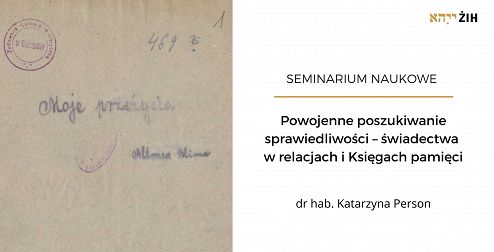 1
469 Ż.
Moje przeżycia
w Warszawie
ייִהאַ ŻIH
SEMINARIUM NAUKOWE
Powojenne poszukiwanie
sprawiedliwości – świadectwa
w relacjach i Księgach pamięci
dr hab. Katarzyna Person